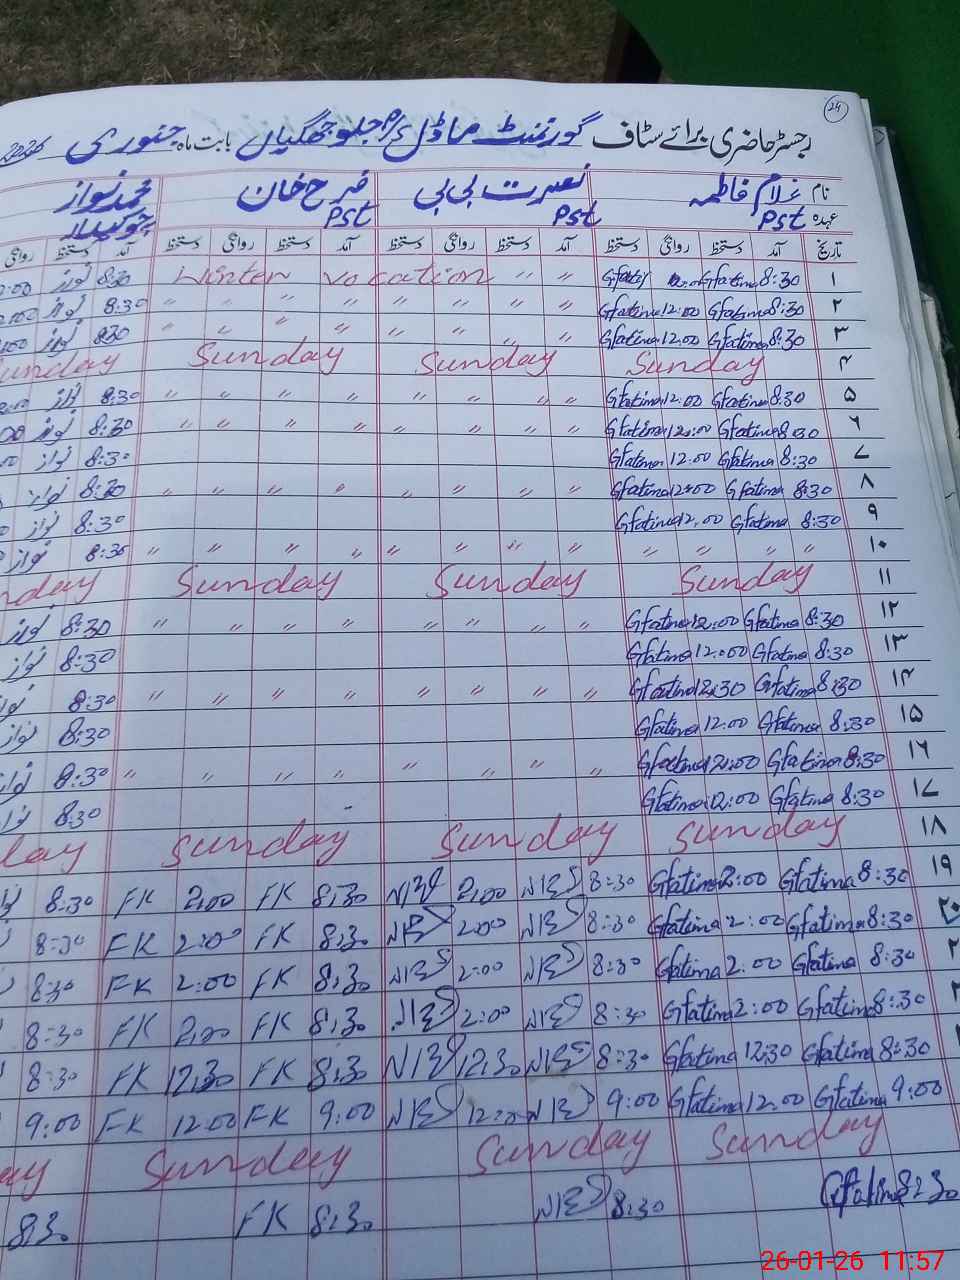 24
رجسٹر حاضری برائے سٹاف گورنمنٹ ماڈل P/S جلو جھگیاں بابت ماہ جنوری 2026
نام غلام فاطمہ نصرت بی بی فرح خان محمد نواز
عہدہ Pst Pst Pst چوکیدار
تاریخ آمد دستخط روانگی دستخط آمد دستخط روانگی دستخط آمد دستخط روانگی دستخط آمد دستخط روانگی
۱ 8:30 Gfatima Winter Vacation 〃 〃 8:30 نواز
۲ 8:30 Gfatima 12:00 Gfatima 〃 〃 〃 〃 〃 〃 〃 〃 8:30 نواز
۳ 8:30 Gfatima 12:00 Gfatima 〃 〃 〃 〃 〃 〃 〃 〃 8:30 نواز
۴ Sunday Sunday Sunday Sunday
۵ 8:30 Gfatima 12:00 Gfatima 〃 〃 〃 〃 〃 〃 〃 〃 8:30 نواز
۶ 8:30 Gfatima 12:00 Gfatima 〃 〃 〃 〃 〃 〃 〃 〃 8:30 نواز
۷ 8:30 Gfatima 12:00 Gfatima 8:30 نواز
۸ 8:30 Gfatima 12:00 Gfatima 〃 〃 〃 〃 〃 〃 〃 〃 8:30 نواز
۹ 8:30 Gfatima 12:00 Gfatima 8:30 نواز
۱۰ 〃 〃 〃 〃 〃 〃 〃 〃 〃 〃 〃 〃 8:30 نواز
۱۱ Sunday Sunday Sunday
۱۲ 8:30 Gfatima 12:00 Gfatima 〃 〃 〃 〃 〃 〃 〃 〃 8:30 نواز
۱۳ 8:30 Gfatima 12:00 Gfatima 8:30 نواز
۱۴ 8:30 Gfatima 12:30 Gfatima 〃 〃 〃 〃 〃 〃 〃 〃 8:30 نواز
۱۵ 8:30 Gfatima 12:00 Gfatima 8:30 نواز
۱۶ 8:30 Gfatima 12:00 Gfatima 〃 〃 〃 〃 〃 〃 〃 8:30 نواز
۱۷ 8:30 Gfatima 12:00 Gfatima 8:30 نواز
۱۸ Sunday Sunday Sunday
۱۹ 8:30 Gfatima 2:00 Gfatima 8:30 2:00 8:30 FK 2:00 FK 8:30
۲۰ 8:30 Gfatima 2:00 Gfatima 8:30 2:00 8:30 FK 2:00 FK 8:30
8:30 Gfatima 2:00 Gfatima 8:30 2:00 8:30 FK 2:00 FK 8:30
8:30 Gfatima 2:00 Gfatima 8:30 2:00 8:30 FK 2:00 FK 8:30
8:30 Gfatima 12:30 Gfatima 8:30 12:30 8:30 FK 12:30 FK 8:30
9:00 Gfatima 12:00 Gfatima 9:00 12:00 9:00 FK 12:00 FK 9:00
Sunday Sunday Sunday
8:30 Gfatima 8:30 8:30 FK 8:30
26-01-26 11:57